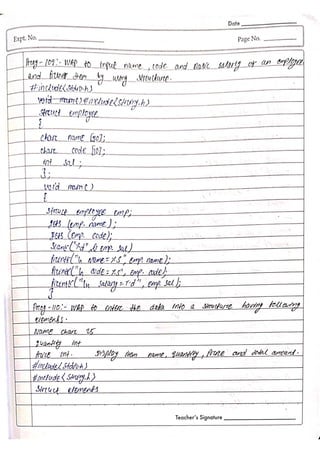 Date
Expt. No.
Page No.
Prog-109:- WAP to input name, code and basic salary of an employee
and print them by using structure.
#include<stdio.h>
#include<string.h>
struct employee
{
char name [50];
char code [10];
int sal;
};
void main()
{
struct employee emp;
gets (emp.name);
gets (emp.code);
scanf("%d", & emp.sal)
printf("\n Name=%s", emp.name);
printf("\n code=%s", emp.code)
printf("\n Salary=%d", emp.sal);
}
Prog-110:- WAP to enter the data into a structure having following
elements.
Name char 25
Quantity int
Price int. Display item name, quantity, price and total amount.
#include<stdio.h>
#include<string.h>
struct elements
Teacher's Signature